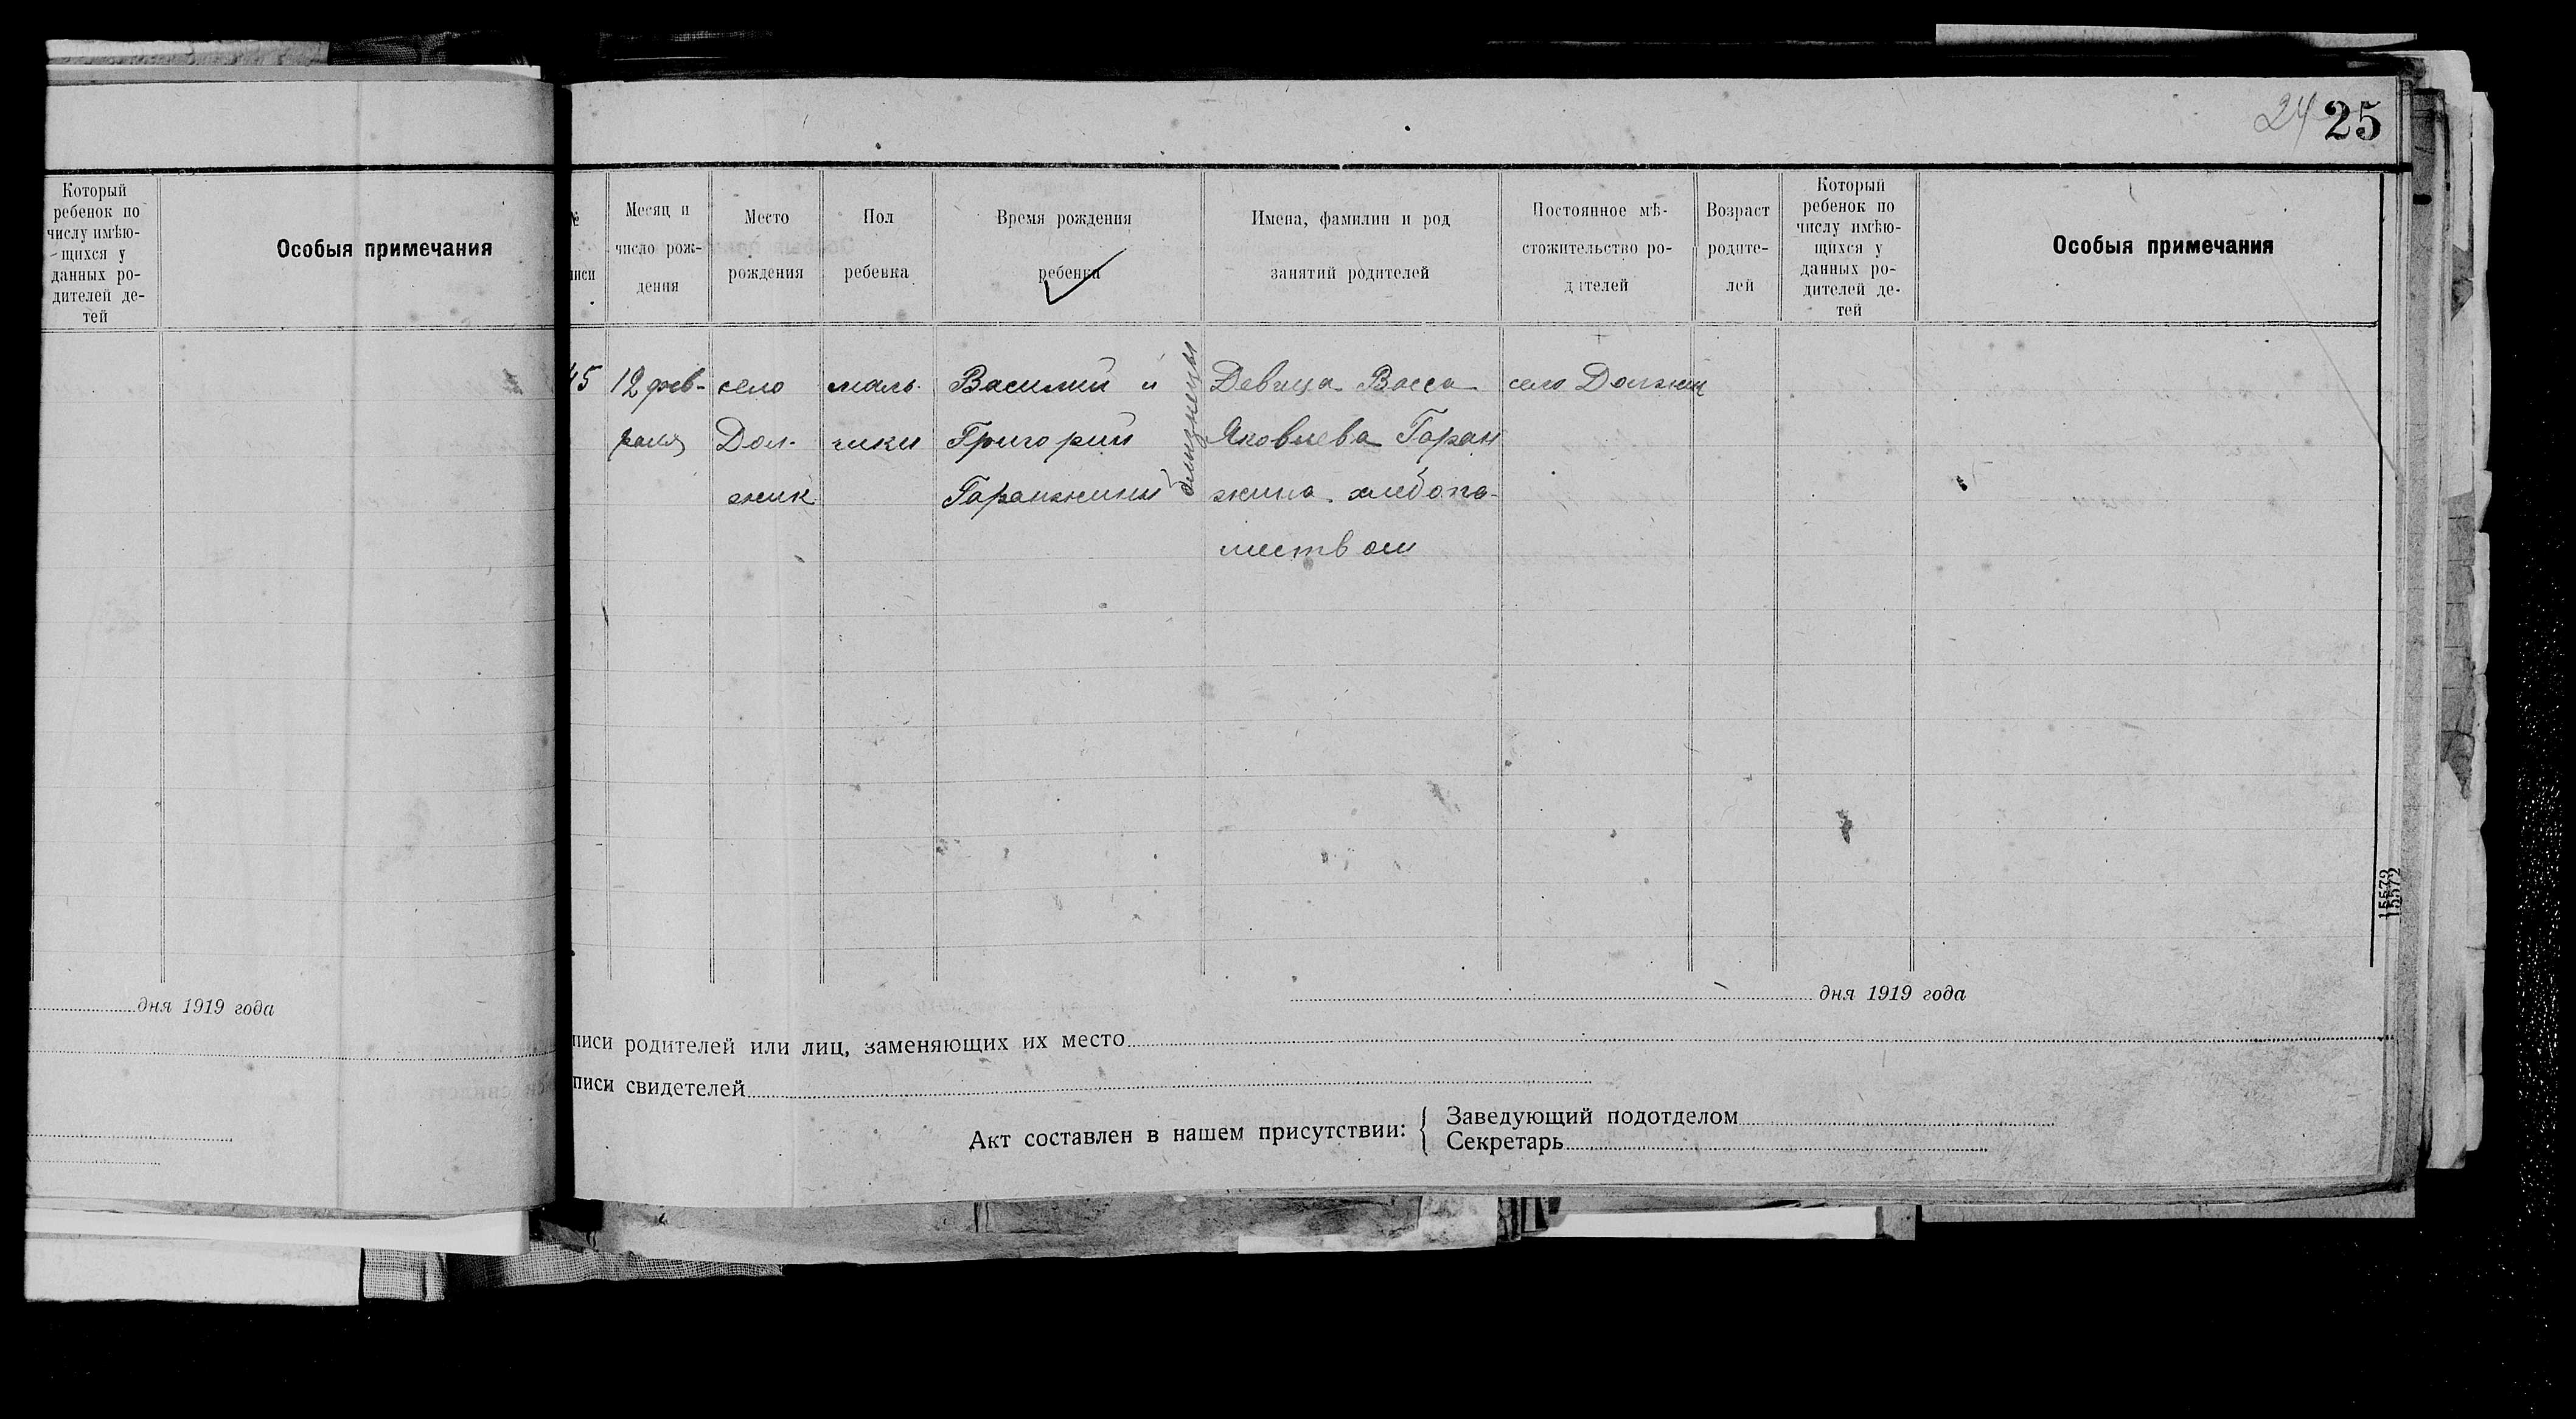 24 25
Который
ребенок по
числу имѣю-
щихся у
данных ро-
дителей де-
тей
Особыя примечания
дня 1919 года
№
писи
Месяц и
число рож-
дения
Место
рождения
Пол
ребенка
Время рождения
ребенка
Имена, фамилии и род
занятий родителей
Постоянное мѣ-
стожительство ро-
дителей
Возраст
родите-
лей
Который
ребенок по
числу имѣю-
щихся у
данных ро-
дителей де-
тей
Особыя примечания
45
12 фев-
раля
село
Дол-
жик
маль-
чики
Василий и
Григорий
Гаранжины
близнецы
Девица Васса
Яковлева Гаран
жина. хлебопа-
шеством
село Должик
15572
15572
дня 1919 года
писи родителей или лиц, заменяющих их место
писи свидетелей
Акт составлен в нашем присутствии:
Заведующий подотделом
Секретарь